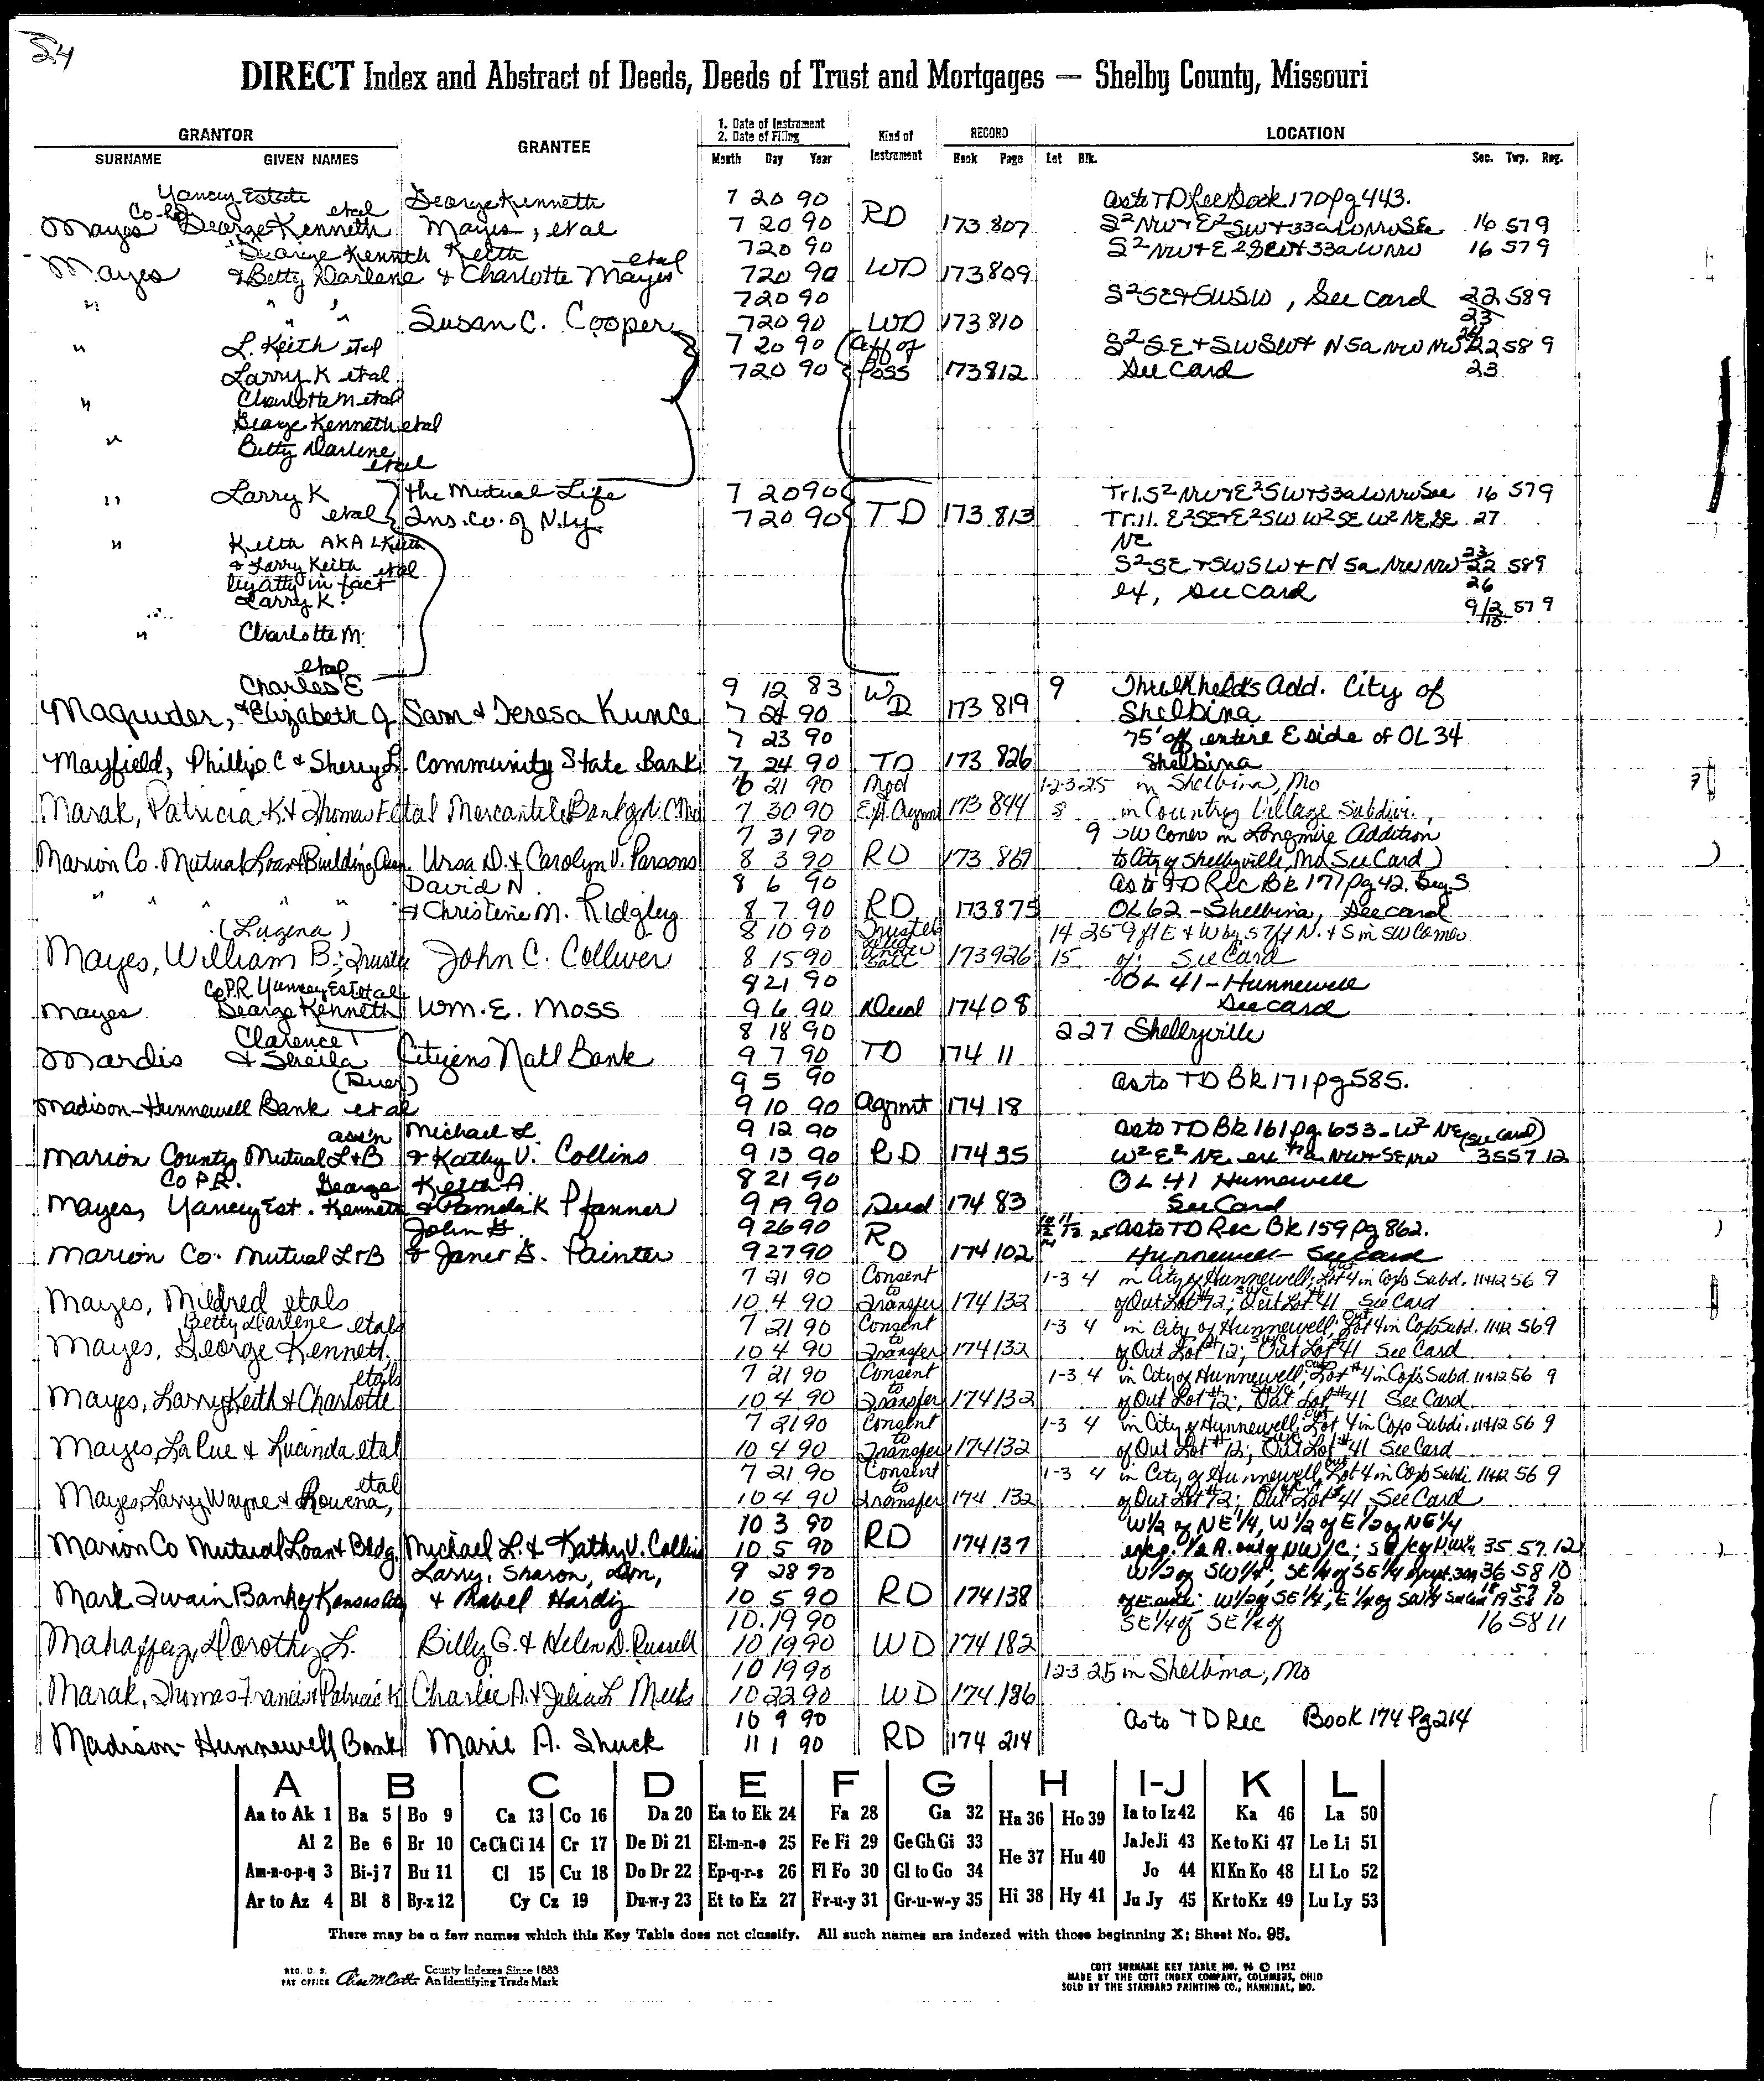 54
DIRECT Index and Abstract of Deeds, Deeds of Trust and Mortgages — Shelby County, Missouri
GRANTOR
SURNAME GIVEN NAMES
GRANTEE
1. Date of Instrument
2. Date of Filing
Month Day Year
Kind of Instrument
RECORD
Book Page
LOCATION
Lot Blk. Sec. Twp. Rng.
Yancey Estate George Kenneth 7 20 90 As to TD Rec Book 170 pg 443.
Mayes George Kenneth etal Mayes, etal 7 20 90 RD 173 807 S2 NW + E2 SW + 33a 16 57 9
George Kenneth Keith 7 20 90 16 57 9
Mayes & Betty Darlene & Charlotte Mayes etal 7 20 90 WD 173 809
7 20 90 S2 SE + SWSW, See card 22 58 9
" " " Susan C. Cooper 7 20 90 WD 173 810 23
" L. Keith etal 7 20 90 Aff of S2 SE + SWSW + N 5a NW NW 22 58 9
Larry K etal 7 20 90 Poss 173 812 See Card 23
" Charlotte M etal
George Kenneth etal
" Betty Darlene etal
" Larry K the Mutual Life 7 20 90 Tr I. S2 NW + E2 SW + 33a 16 57 9
etal Ins. Co. of N.Y. 7 20 90 TD 173 813 Tr. II. E2 SE + E2 SW W2 SE W2 NE SE 27
" Keith AKA L Keith NE
& Larry Keith etal S2 SE + SWSW + N 5a NW NW 22 58 9
by atty in fact 26
Larry K. ex, See card 57 9
" Charlotte M.
etal
Charles E 9 12 83 9 Threlkeld's Add. City of
Magruder, & Elizabeth J Sam & Teresa Kunce 7 24 90 WD 173 819 Shelbina
7 23 90 75' off entire E side of OL 34
Mayfield, Phillip C & Sherry L. Community State Bank 7 24 90 TD 173 826 Shelbina
6 21 90 Mod 1-2-3 25 in Shelbina, Mo
Marak, Patricia K. & Thomas F. etal Mercantile Bank of N.C. Mo 7 30 90 Ext. Agrmt 173 844 8 in Country Village Subdivi.,
7 31 90 9 SW Corner in Longmire Addition
Marion Co. Mutual Loan & Building Assn. Ursa D. & Carolyn V. Parsons 8 3 90 RD 173 869 to City of Shelbyville, Mo See Card)
David N. 8 6 90 As to TD Rec Bk 171 pg 42. Beg S
" " " " " & Christine M. Ridgley 8 7 90 RD 173 875 OL 62 - Shelbina, See card
(Lugena) 8 10 90 Trustee's 14 25 9 ft E & W by 57 ft N. & S in SW Corner
Mayes, William B., Trustee John C. Colliver 8 15 90 Deed Sale 173 926 15 of; See Card
Co P.R. Yancey Est etal 8 21 90 OL 41 - Hunnewell
Mayes George Kenneth Wm. E. Moss 9 6 90 Deed 174 08 See card
Clarence T 8 18 90 2 27 Shelbyville
Mardis & Sheila Citizens Natl Bank 9 7 90 TD 174 11
(Duer) 9 5 90 As to TD Bk 171 pg 585.
Madison-Hunnewell Bank etal 9 10 90 Agrmt 174 18
ass'n Michael L. 9 12 90 As to TD Bk 161 pg 653 - W2 NE (See Card)
Marion County Mutual L & B & Kathy V. Collins 9 13 90 RD 174 35 W2 E2 NE 35 57 12
Co P.R. George Keith A. 8 21 90 OL 41 Hunnewell
Mayes, Yancey Est. Kenneth & Pamela K Pfanner 9 19 90 Deed 174 83 See Card
John G. 9 26 90 As to TD Rec Bk 159 pg 862.
Marion Co. Mutual L & B & Janet G. Painter 9 27 90 RD 174 102 Hunnewell - See card
7 21 90 Consent 1-3 4 in City of Hunnewell; Out Lot 4 in Cop's Subd. 11+12 56 9
Mayes, Mildred etals 10 4 90 to Transfer 174 132 of Out Lot #12; Out Lot #41 See Card
Betty Darlene etals 7 21 90 Consent 1-3 4 in City of Hunnewell; Out Lot 4 in Cop's Subd. 11+12 56 9
Mayes, George Kennett. 10 4 90 to Transfer 174 132 of Out Lot #12; Out Lot #41 See Card
etals 7 21 90 Consent 1-3 4 in City of Hunnewell; Out Lot #4 in Cop's Subd. 11+12 56 9
Mayes, Larry Keith & Charlotte 10 4 90 to Transfer 174 132 of Out Lot #12; Out Lot #41 See Card
7 21 90 Consent 1-3 4 in City of Hunnewell; Out Lot 4 in Cop's Subdi. 11+12 56 9
Mayes, LaRue & Lucinda etal 10 4 90 to Transfer 174 132 of Out Lot #12; Out Lot #41 See Card
etal 7 21 90 Consent 1-3 4 in City of Hunnewell, Out Lot 4 in Cop's Subdi. 11+12 56 9
Mayes, Larry Wayne & Rowena, 10 4 90 to transfer 174 132 of Out Lot #12; Out Lot #41 See Card
10 3 90 W 1/2 of NE 1/4, W 1/2 of E 1/2 of NE 1/4
Marion Co Mutual Loan & Bldg. Michael L. & Kathy V. Collins 10 5 90 RD 174 137 35. 57. 12
Larry, Sharon, 9 28 90 W 1/2 of SW 1/4; SE 1/4 of SE 1/4 36 58 10
Mark Twain Bank of Kansas City & Mabel Hardy 10 5 90 RD 174 138 W 1/2 of SE 1/4, E 1/4 of 19 58 10
10 19 90 SE 1/4 of SE 1/4 of 16 58 11
Mahaffey, Dorothy L. Billy G. & Helen D. Russell 10 19 90 WD 174 182
10 19 90 1-2-3 25 in Shelbina, Mo
Marak, Thomas Francis & Patricia K Charlie A. & Julia L Meeks 10 22 90 WD 174 186
10 9 90 As to TD Rec Book 174 Pg 214
Madison-Hunnewell Bank Marie A. Shuck 11 1 90 RD 174 214
A B C D E F G H I-J K L
Aa to Ak 1 Ba 5 Bo 9 Ca 13 Co 16 Da 20 Ea to Ek 24 Fa 28 Ga 32 Ha 36 Ho 39 Ia to Iz 42 Ka 46 La 50
Al 2 Be 6 Br 10 Ce Ch Ci 14 Cr 17 De Di 21 El-m-n-o 25 Fe Fi 29 Ge Gh Gi 33 He 37 Hu 40 Ja Je Ji 43 Ke to Ki 47 Le Li 51
Am-n-o-p-q 3 Bi-j 7 Bu 11 Cl 15 Cu 18 Do Dr 22 Ep-q-r-s 26 Fl Fo 30 Gl to Go 34 Jo 44 Kl Kn Ko 48 Ll Lo 52
Ar to Az 4 Bl 8 By-z 12 Cy Cz 19 Du-w-y 23 Et to Ez 27 Fr-u-y 31 Gr-u-w-y 35 Hi 38 Hy 41 Ju Jy 45 Kr to Kz 49 Lu Ly 53
There may be a few names which this Key Table does not classify. All such names are indexed with those beginning X; Sheet No. 95.
REG. U. S. PAT OFFICE
County Indexes Since 1888
An Identifying Trade Mark
COTT SURNAME KEY TABLE NO. 96 © 1952
MADE BY THE COTT INDEX COMPANY, COLUMBUS, OHIO
SOLD BY THE STANDARD PRINTING CO., HANNIBAL, MO.